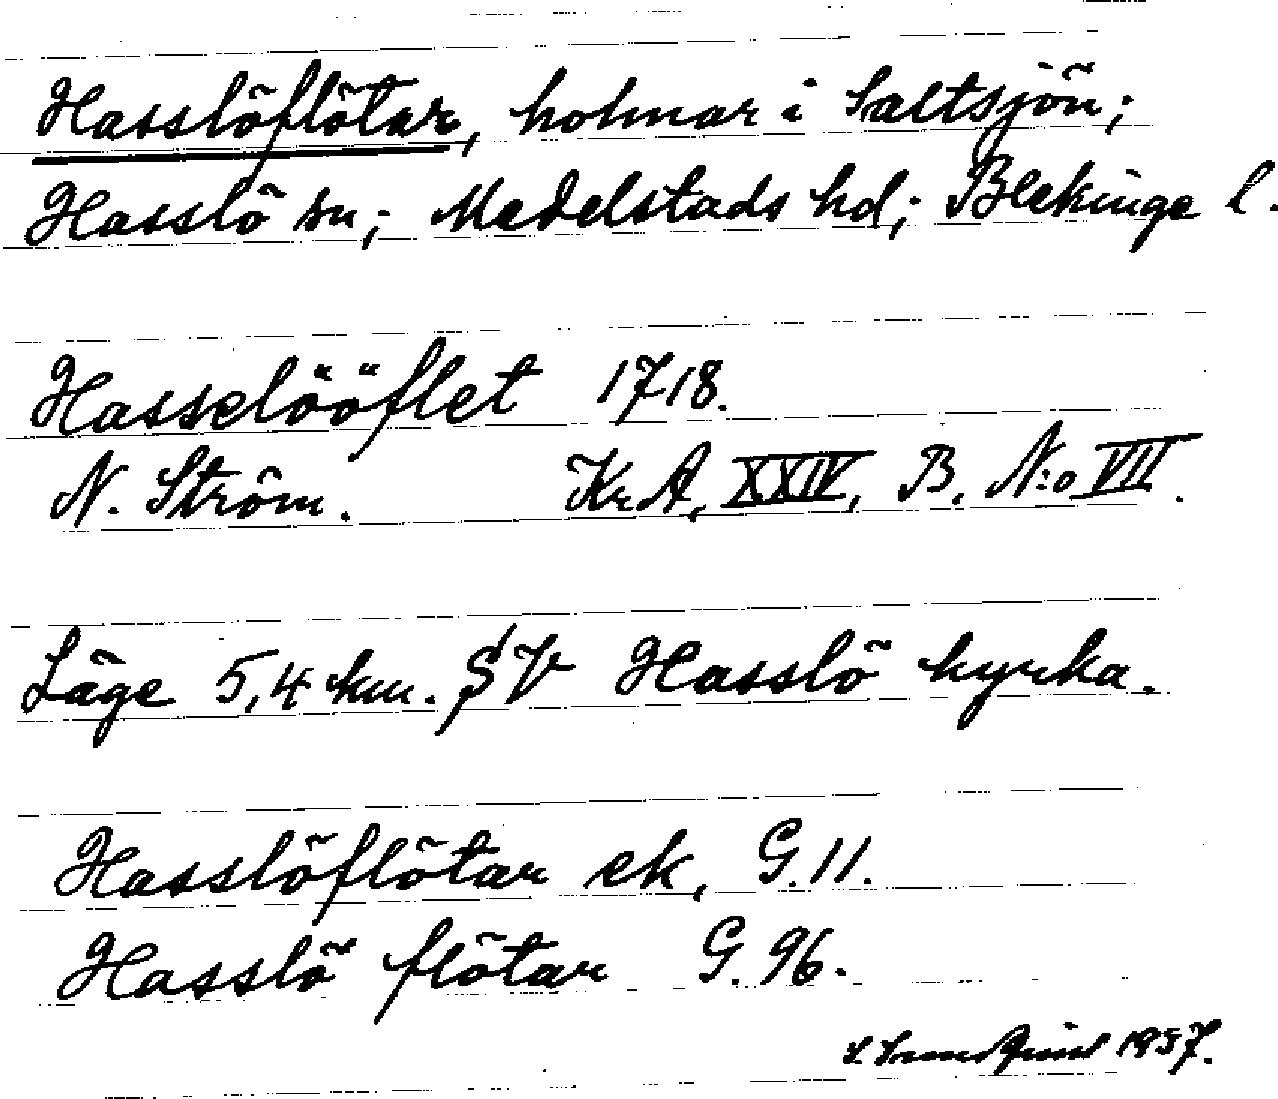 Hasslöflötar, holmar i Saltsjön;
Hasslö sn; Medelstads hd; Blekinge l.
Hasselööflet 1718.
N. Ström. Kr.A, XXIV, B, N:o VII.
Läge 5,4 km. SV Hasslö kyrka.
Hasslöflötar ek, G. 11.
Hasslö flötar G. 96.
1957.